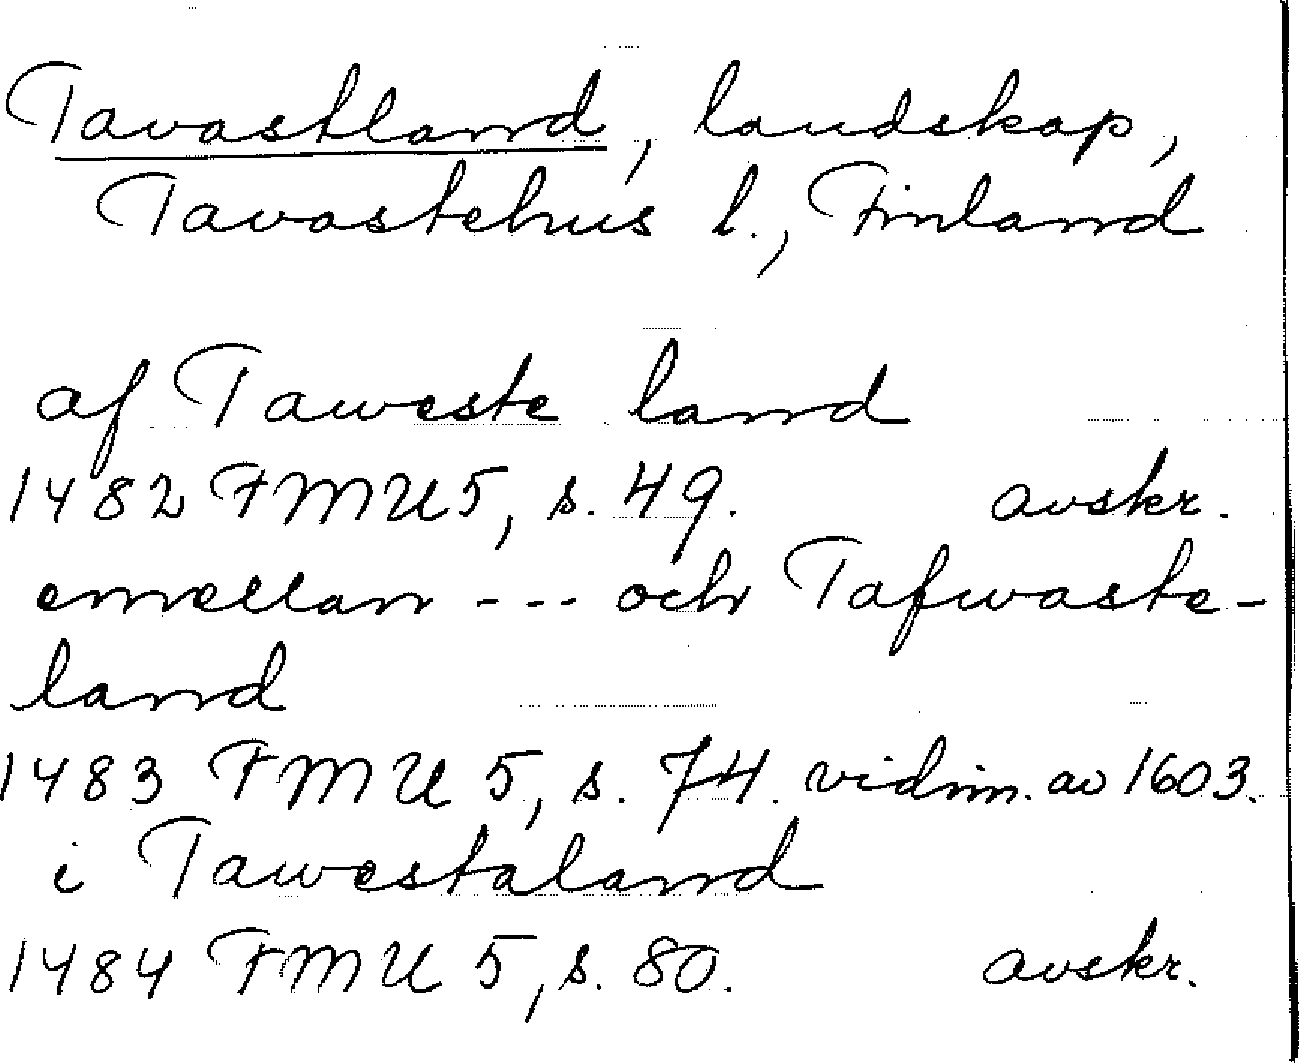 Tavastland, landskap,
Tavastehus l., Finland
af Taweste land
1482 FMU 5, s. 49. avskr.
emellan --- och Tafwaste-
land
1483 FMU 5, s. 74. vidim. av 1603.
i Tawestaland
1484 FMU 5, s. 80. avskr.